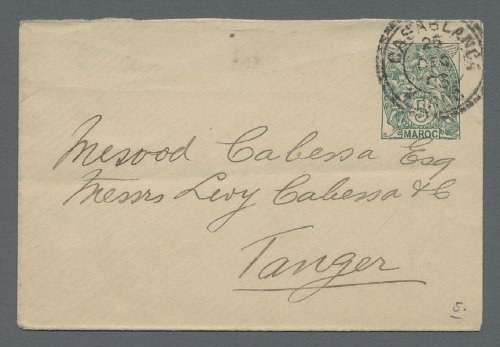 CASABLANCA
25
5
MAROC
Mesod Cabessa Esq
Messrs Levy Cabessa & C
Tanger